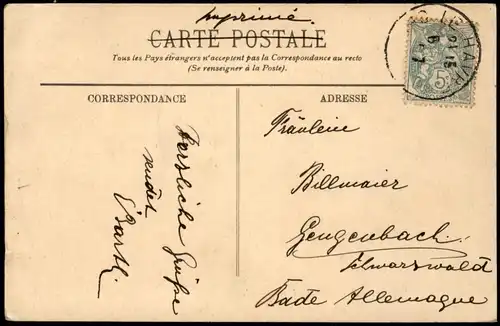 Imprimé.
CARTE POSTALE
Tous les Pays étrangers n'acceptent pas la Correspondance au recto
(Se renseigner à la Poste.)
CORRESPONDANCE
ADRESSE
Herzliche Grüße
sendet
Fräulein
Billmaier
Gengenbach
Schwarzwald
Bade Allemagne
LE HAVRE
5c